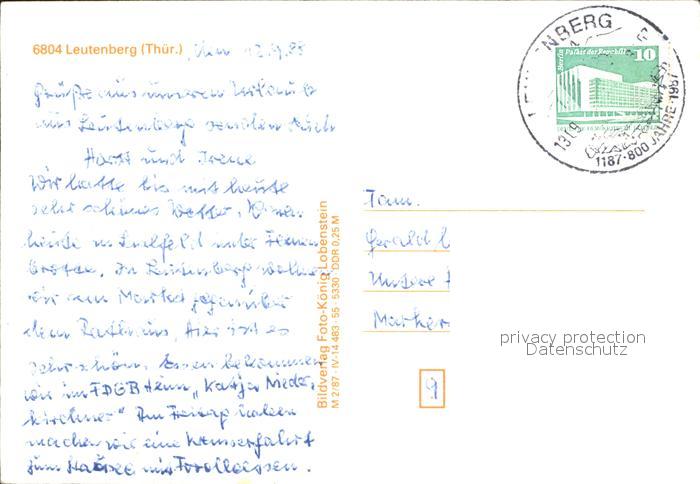 6804 Leutenberg (Thür.), den 12.9.88
Grüße aus unserem Urlaub
aus Leutenberg senden Euch
Horst und Irene
Wir hatte bis mit heute
sehr schönes Wetter.
heute in Saalfeld in der Feen
Grotten. In Leutenberg wohnen
wir am Markt gegenüber
dem Rathaus, Hier ist es
sehr schön. Essen bekommen
wir im FDGB Heim "Katja Nieder
kirchner" Am Freitag haben
machen wir eine
zum mit Forellenessen.
Bildverlag Foto-König Lobenstein
M 2/87 · IV-14 483 · 55 · 5330 · DDR 0,25 M
Fam.
Gerald
Untere
Marker
9
NBERG
Berlin Palast der Republik 10
1187·800 JAHRE·1987
privacy protection
Datenschutz